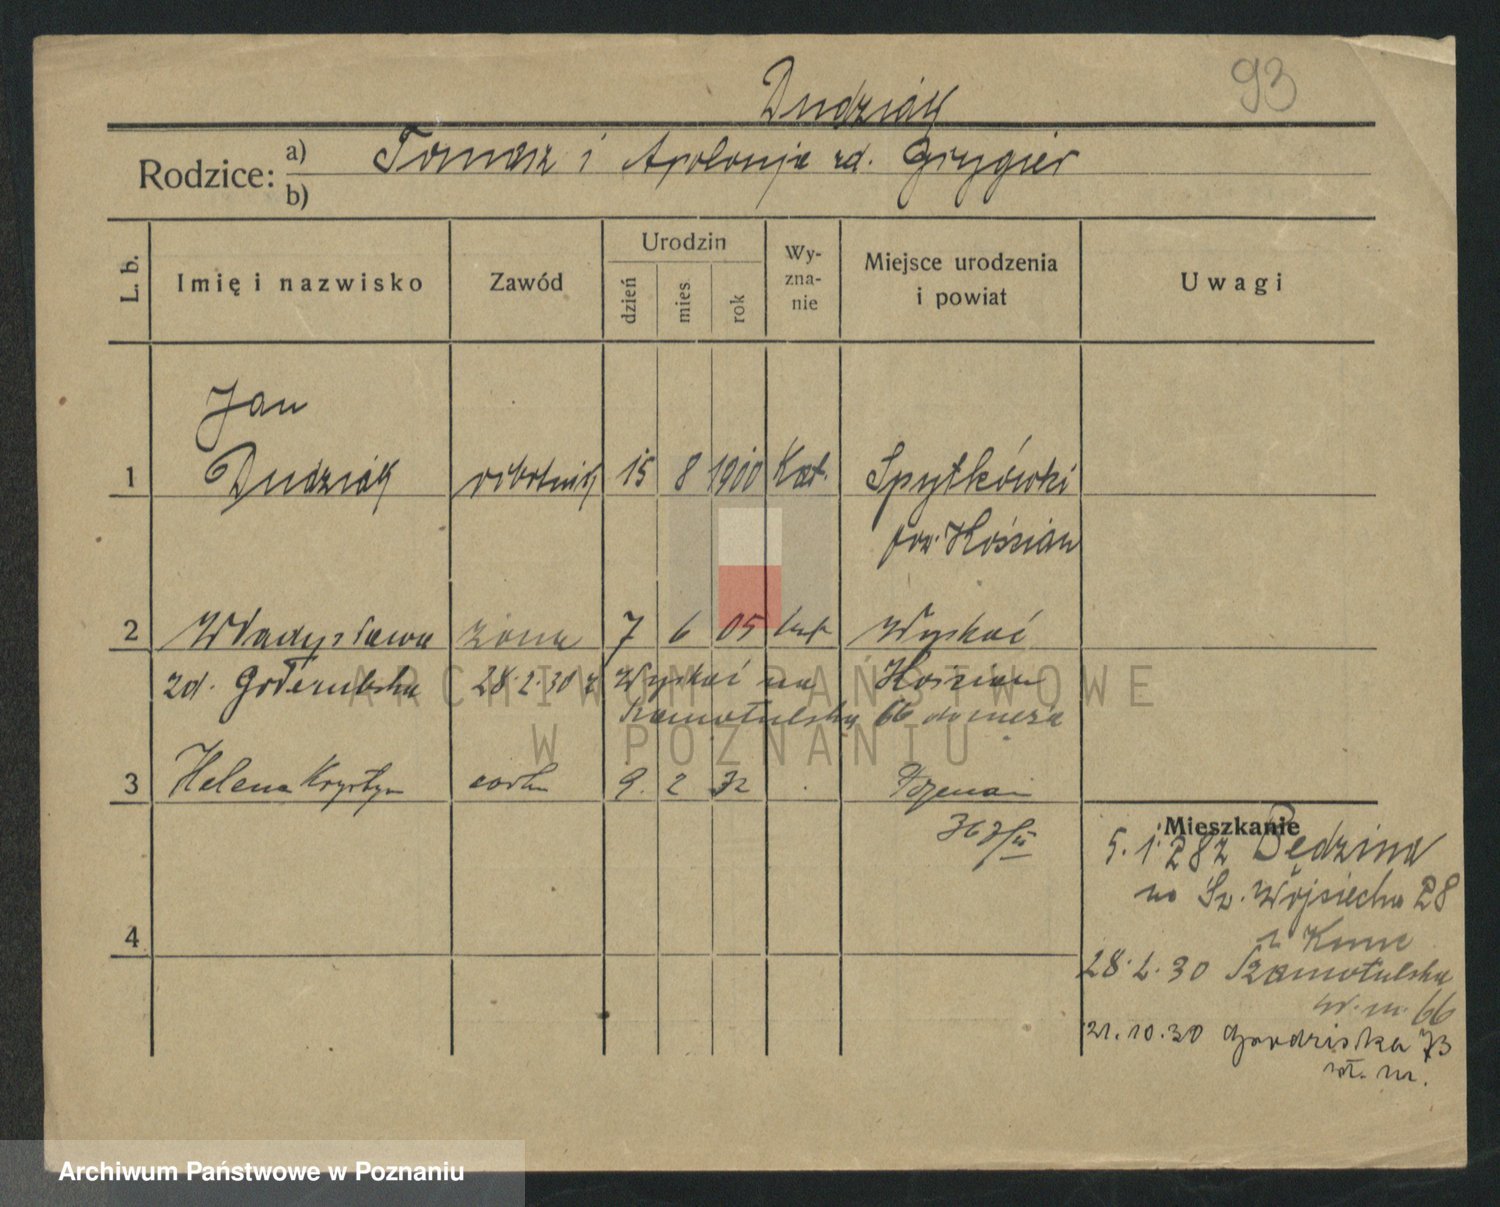 93
Dudziak
Rodzice: a) b)
Tomasz i Apolonja zd. Grygier
L. b. Imię i nazwisko Zawód Urodzin dzień mies. rok Wy-zna-nie Miejsce urodzenia i powiat Uwagi
Jan
1 Dudziak robotnik 15 8 1900 Kat. Spytkówki
pow. Kościan
2 Władysława żona 7 6 05 kat Wyskoć
zd. 28.2.30 z Wyskoć na Kościan
Szamotulską 66 do męża
3 Helena Krystyn córka 9. 2 32 Poznań
Mieszkanie
5.1.28 z Będzina
na Św. Wojciecha 28
4
28.2.30 Szamotulska
66
21.10.30 Grodziska 73
wł. m.
ARCHIWUM PAŃSTWOWE
W POZNANIU
Archiwum Państwowe w Poznaniu